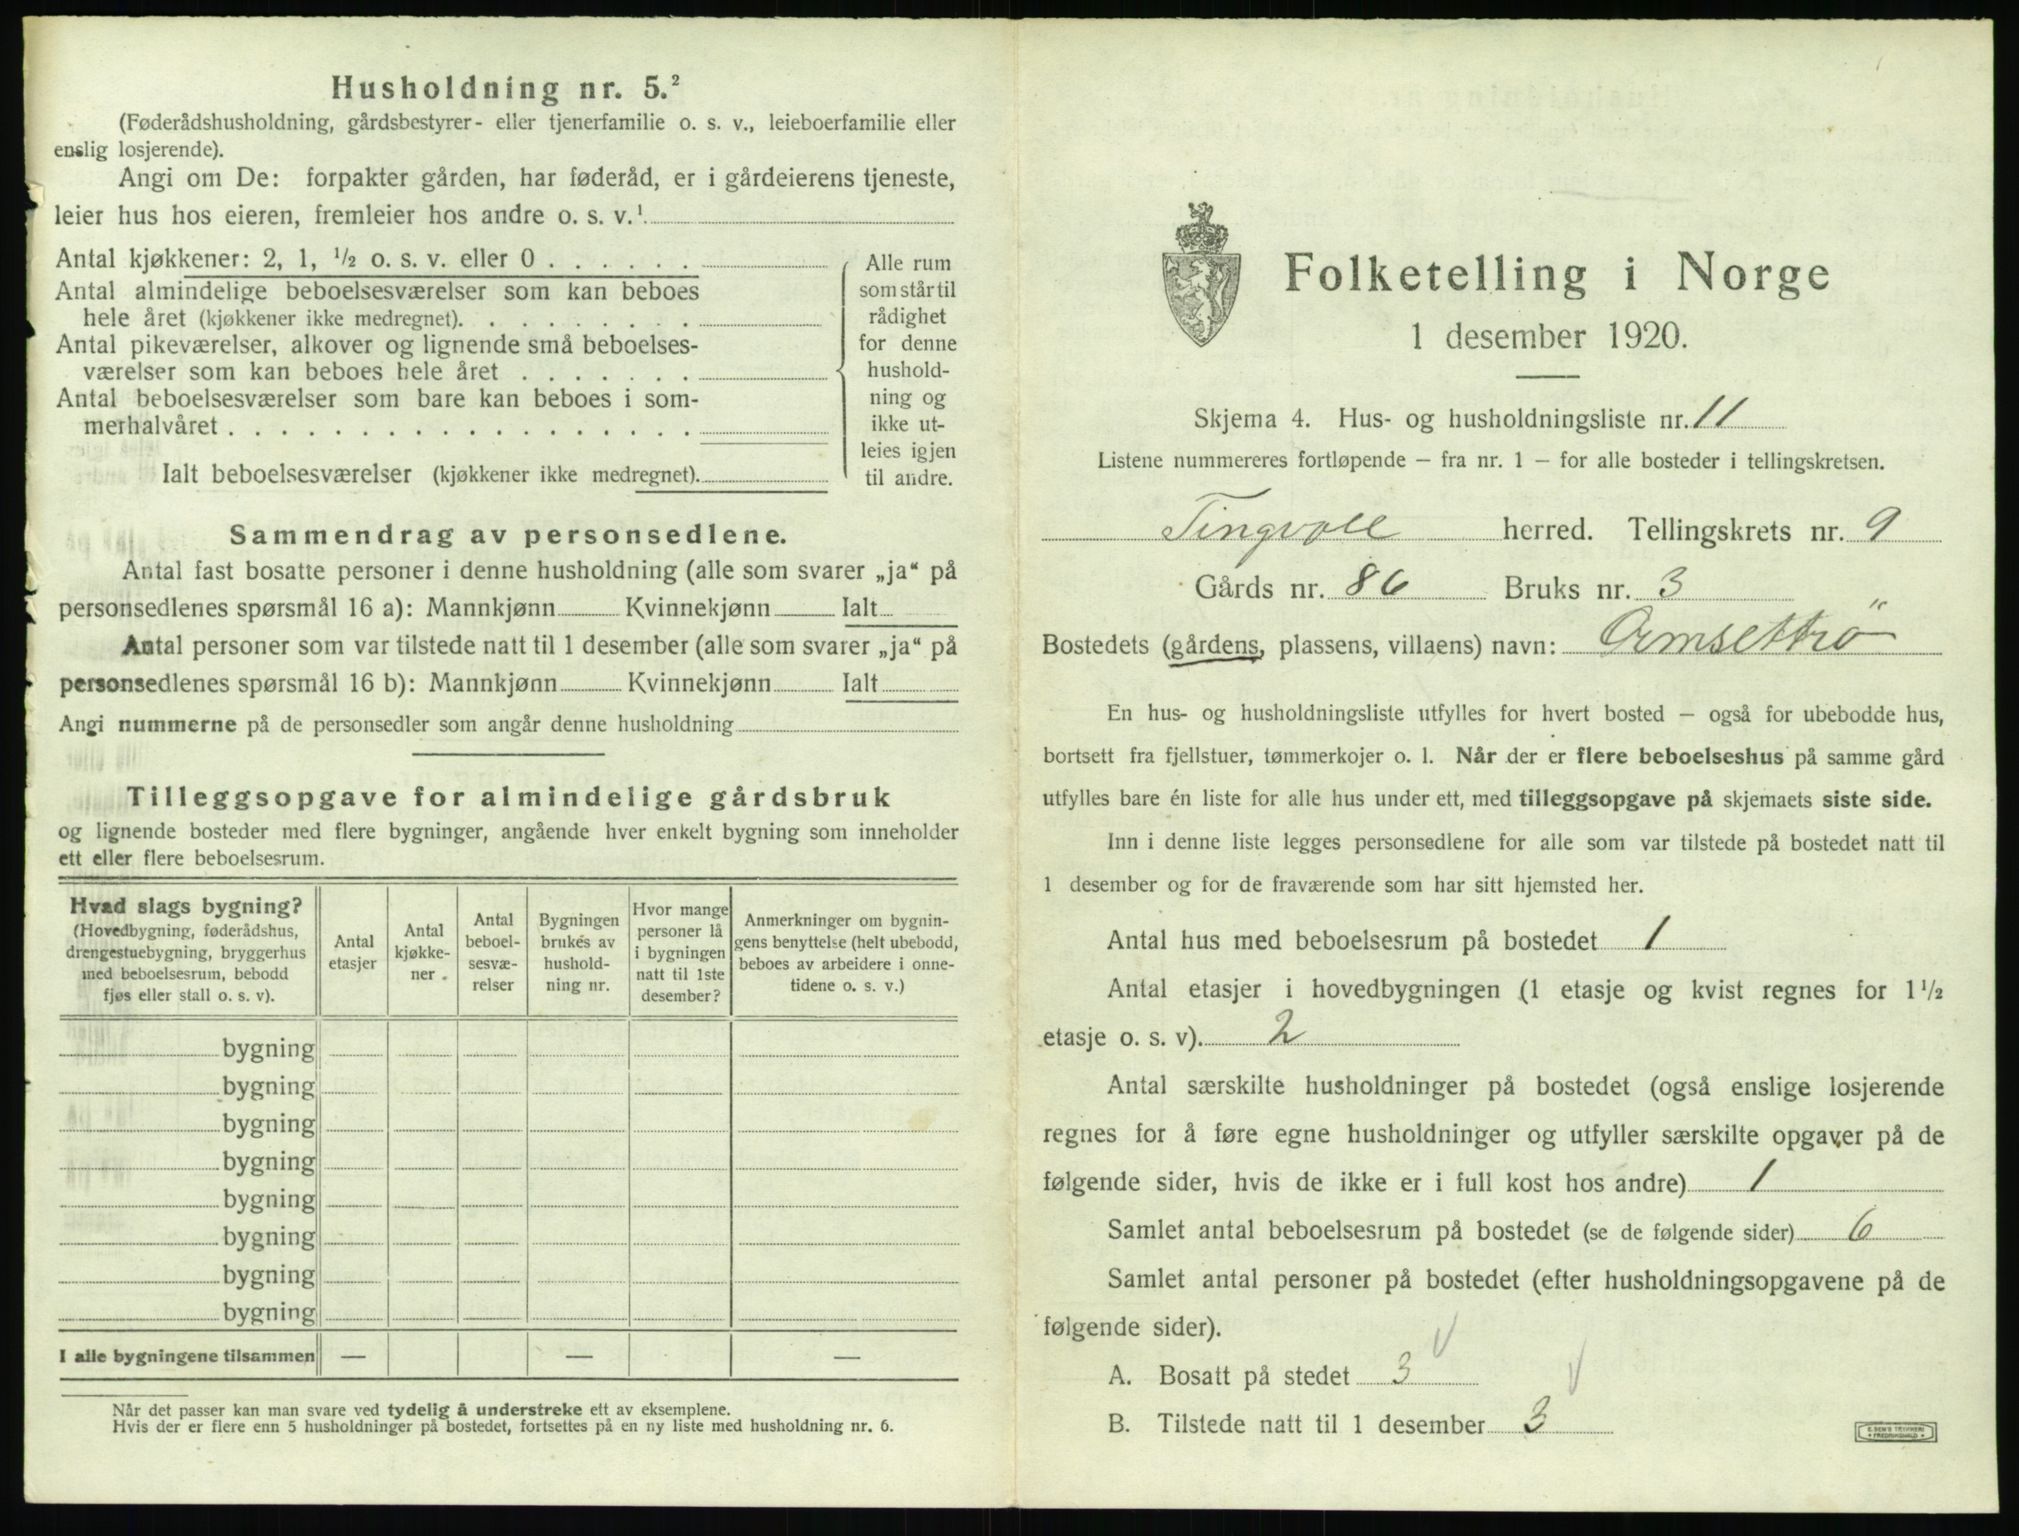 Husholdning nr. 5.²
(Føderådshusholdning, gårdsbestyrer- eller tjenerfamilie o. s. v., leieboerfamilie eller
enslig losjerende).
Angi om De: forpakter gården, har føderåd, er i gårdeierens tjeneste,
leier hus hos eieren, fremleier hos andre o. s. v.¹
Antal kjøkkener: 2, 1, ½ o. s. v. eller 0
Antal almindelige beboelsesværelser som kan beboes
hele året (kjøkkener ikke medregnet).
Antal pikeværelser, alkover og lignende små beboelses-
værelser som kan beboes hele året
Antal beboelsesværelser som bare kan beboes i som-
merhalvåret
Ialt beboelsesværelser (kjøkkener ikke medregnet).
Alle rum
som står til
rådighet
for denne
hushold-
ning og
ikke ut-
leies igjen
til andre.
Sammendrag av personsedlene.
Antal fast bosatte personer i denne husholdning (alle som svarer „ja“ på
personsedlenes spørsmål 16 a): Mannkjønn Kvinnekjønn Ialt
Antal personer som var tilstede natt til 1 desember (alle som svarer „ja“ på
personsedlenes spørsmål 16 b): Mannkjønn Kvinnekjønn Ialt
Angi nummerne på de personsedler som angår denne husholdning
Tilleggsopgave for almindelige gårdsbruk
og lignende bosteder med flere bygninger, angående hver enkelt bygning som inneholder
ett eller flere beboelsesrum.
Hvad slags bygning?
(Hovedbygning, føderådshus,
drengestuebygning, bryggerhus
med beboelsesrum, bebodd
fjøs eller stall o. s. v).
Antal
etasjer
Antal
kjøkke-
ner
Antal
beboel-
sesvæ-
relser
Bygningen
brukes av
hushold-
ning nr.
Hvor mange
personer lå
i bygningen
natt til 1ste
desember?
Anmerkninger om bygnin-
gens benyttelse (helt ubebodd,
beboes av arbeidere i onne-
tidene o. s. v.)
bygning
bygning
bygning
bygning
bygning
bygning
bygning
bygning
I alle bygningene tilsammen — — —
Når det passer kan man svare ved tydelig å understreke ett av eksemplene.
Hvis der er flere enn 5 husholdninger på bostedet, fortsettes på en ny liste med husholdning nr. 6.
Folketelling i Norge
1 desember 1920.
Skjema 4. Hus- og husholdningsliste nr. 11
Listene nummereres fortløpende — fra nr. 1 — for alle bosteder i tellingskretsen.
Tingvoll herred. Tellingskrets nr. 9
Gårds nr. 86 Bruks nr. 3
Bostedets (gårdens, plassens, villaens) navn: Ormsettrö
En hus- og husholdningsliste utfylles for hvert bosted — også for ubebodde hus,
bortsett fra fjellstuer, tømmerkojer o. l. Når der er flere beboelseshus på samme gård
utfylles bare én liste for alle hus under ett, med tilleggsopgave på skjemaets siste side.
Inn i denne liste legges personsedlene for alle som var tilstede på bostedet natt til
1 desember og for de fraværende som har sitt hjemsted her.
Antal hus med beboelsesrum på bostedet 1
Antal etasjer i hovedbygningen (1 etasje og kvist regnes for 1½
etasje o. s. v). 2
Antal særskilte husholdninger på bostedet (også enslige losjerende
regnes for å føre egne husholdninger og utfyller særskilte opgaver på de
følgende sider, hvis de ikke er i full kost hos andre) 1
Samlet antal beboelsesrum på bostedet (se de følgende sider) 6
Samlet antal personer på bostedet (efter husholdningsopgavene på de
følgende sider).
A. Bosatt på stedet 3
B. Tilstede natt til 1 desember 3